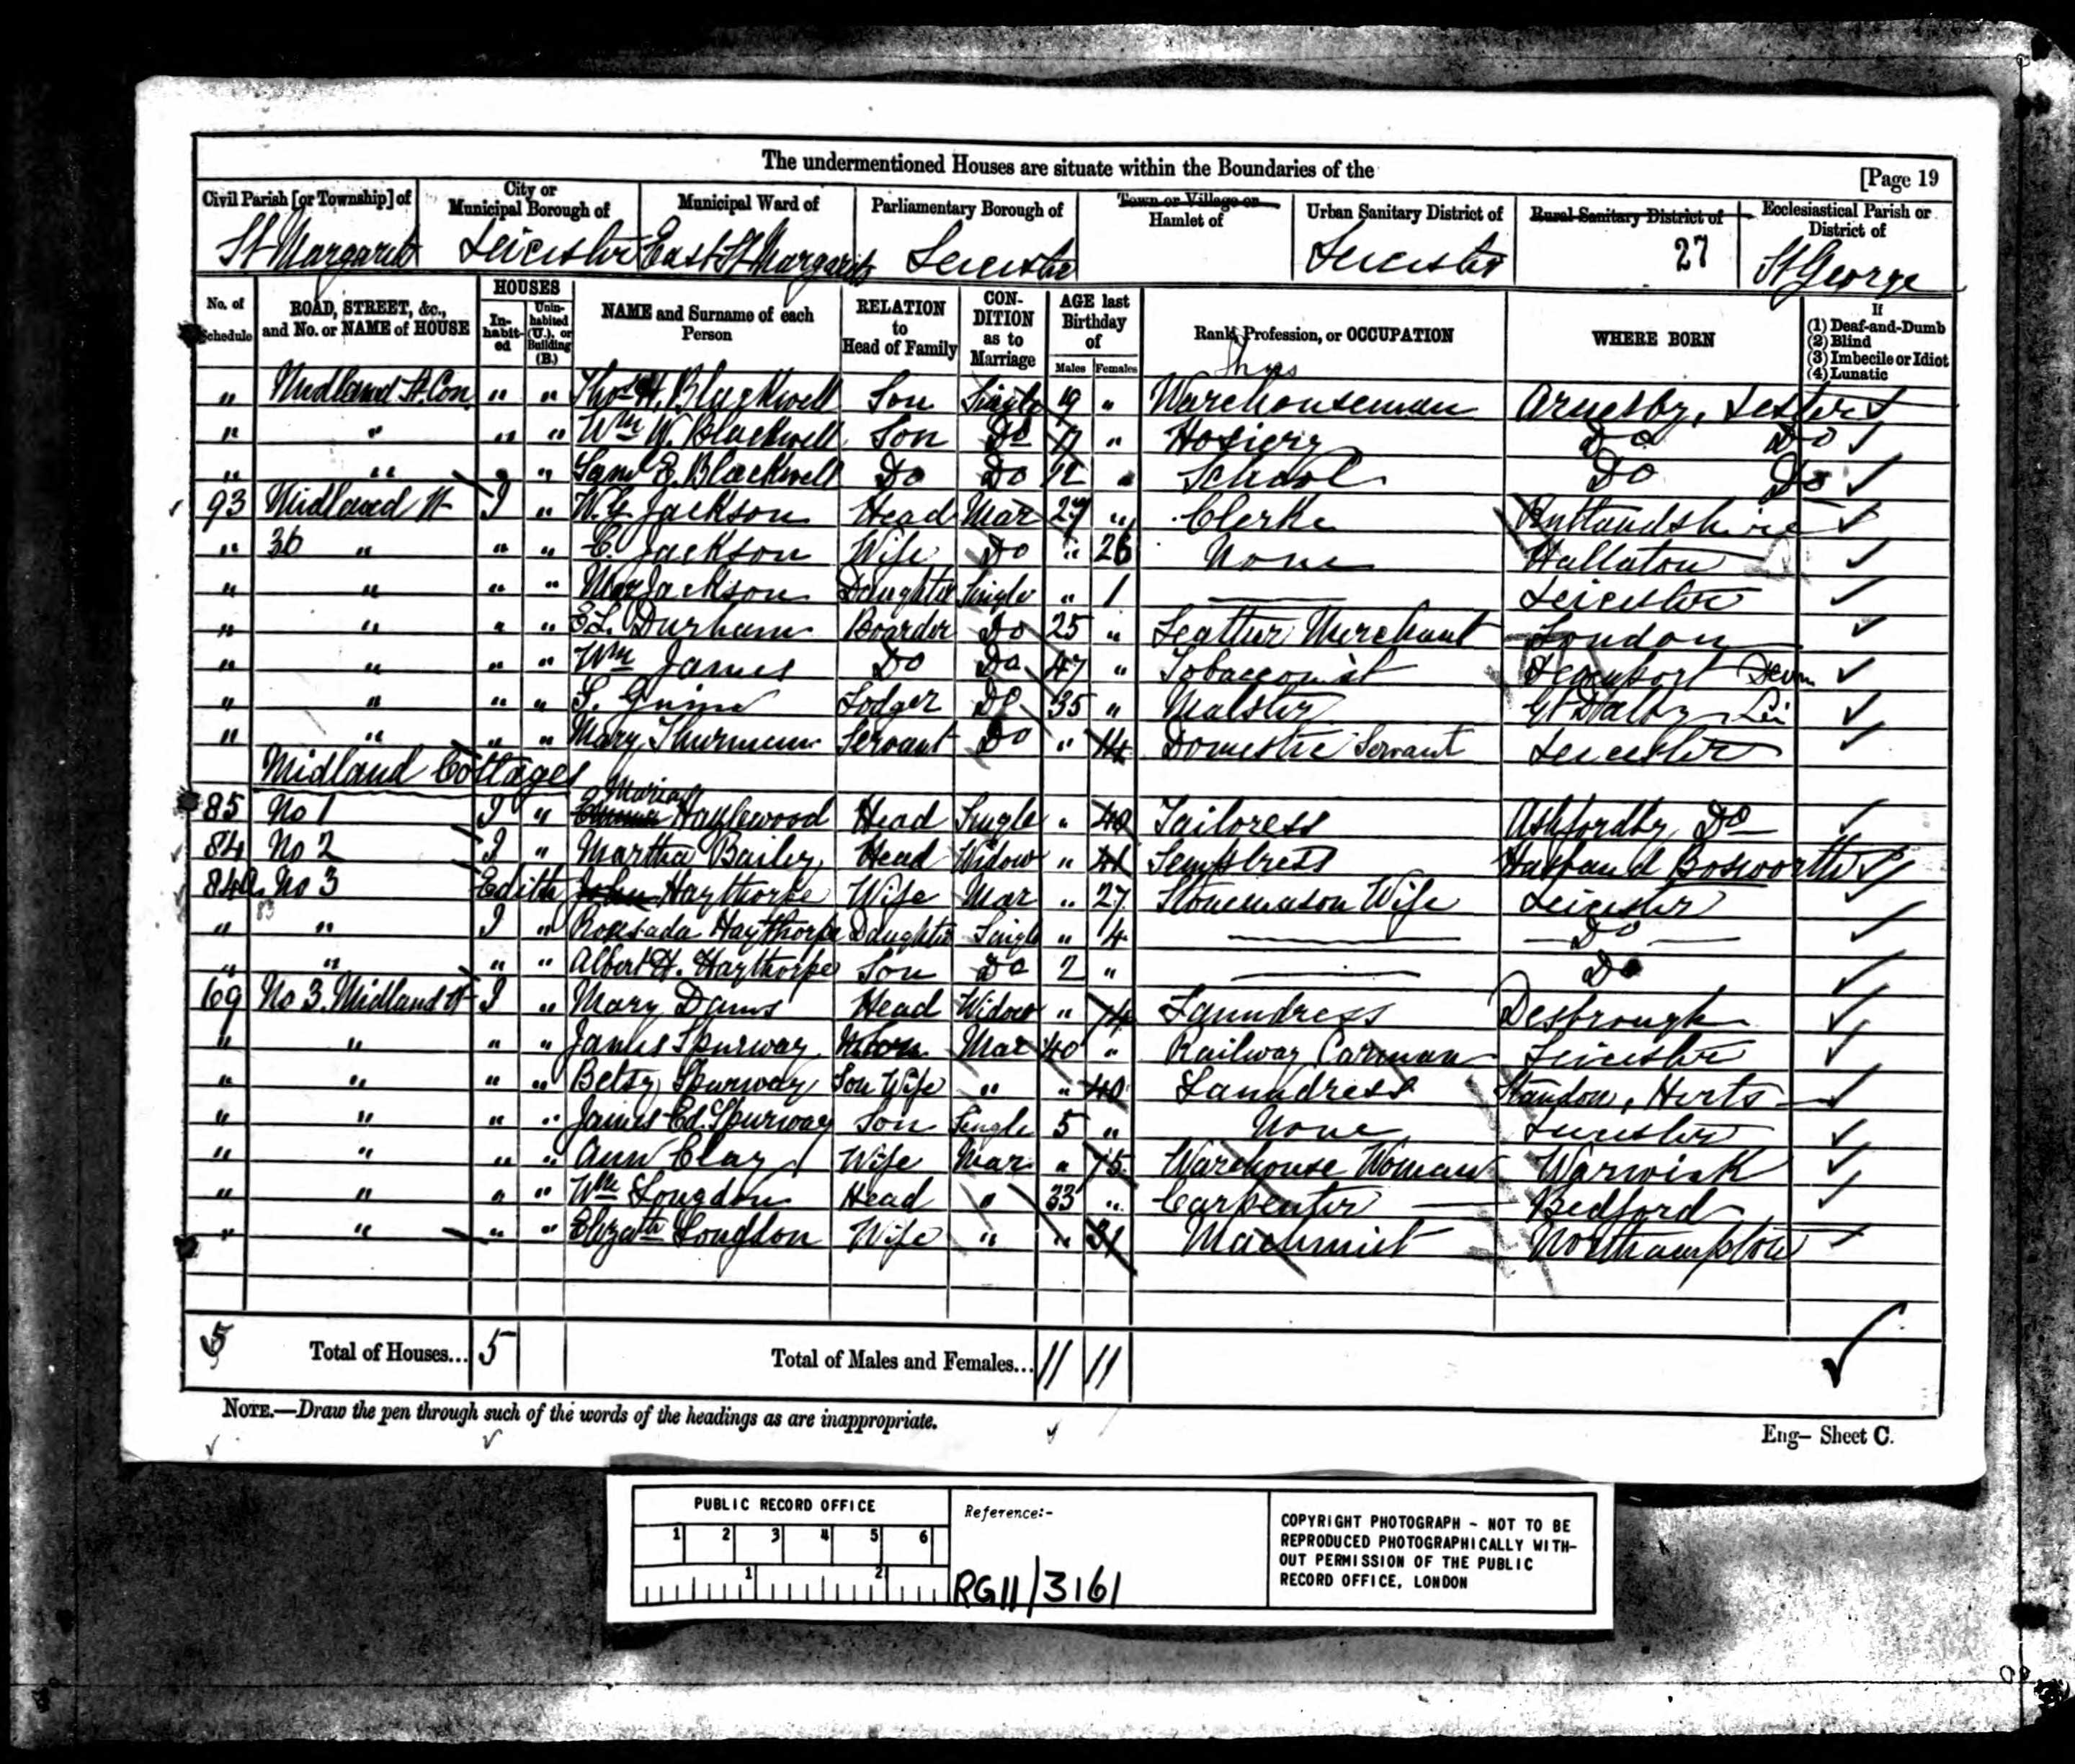 The undermentioned Houses are situate within the Boundaries of the
[Page 19
Civil Parish [or Township] of
City or Municipal Borough of
Municipal Ward of
Parliamentary Borough of
Town or Village or Hamlet of
Urban Sanitary District of
Rural Sanitary District of
Ecclesiastical Parish or District of
St Margarets Leicester East St Margarets Leicester Leicester 27 St George
No. of Schedule
ROAD, STREET, &c., and No. or NAME of HOUSE
HOUSES
In-habit-ed
Unin-habited (U.), or Building (B.)
NAME and Surname of each Person
RELATION to Head of Family
CON-DITION as to Marriage
AGE last Birthday of
Males Females
Rank, Profession, or OCCUPATION
WHERE BORN
If
(1) Deaf-and-Dumb
(2) Blind
(3) Imbecile or Idiot
(4) Lunatic
" Midland St Con. " " Thos H. Blackwell Son Single 19 " Warehouseman Arnesby, Lester
" " " " Wm W. Blackwell Son Do 17 " Hosiery Do Do
" " " " Saml E. Blackwell Do Do 12 " School Do Do
93 Midland St I " W. G. Jackson Head Mar 27 " Clerke Rutlandshire
" 36 " " " C. Jackson Wife Do " 26 None Hallaton
" " " " May Jackson Daughter Single " 1 Leicester
" " " " Durham Boarder Do 25 " Leather Merchant London
" " " " Wm James Do Do 47 " Tobacconist Devonport Devon
" " " " Lodger Do 35 " Malster Gt Dalby Lei
" " " " Mary Thurman Servant Do " 14 Domestic Servant Leicester
Midland Cottages
Maria
85 No 1 I " Emma Hazlewood Head Single " 40 Tailoress Ashfordby Do
84 No 2 I " Martha Bailey Head Widow " Sempstress Husband Bosworth
84a No 3 Edith John Haythorpe Wife Mar " 27 Stonemason Wife Leicester
83
" " I " Haythorpe Daughter Single " 4 Do
" " " " Albert H. Haythorpe Son Do 2 " Do
69 No 3. Midland St I " Mary Dams Head Widow " 74 Laundress Desbrough
" " " " James Spurway Son Mar 40 " Railway Carman Leicester
" " " " Betsy Spurway Son Wife " " 40 Laundress Standon, Herts
" " " " James Ed. Spurway Son Single 5 " None Leicester
" " " " Ann Clay Wife Mar " 75 Warehouse Woman Warwick
" " " " Wm Longdon Head " 33 " Carpenter Bedford
" " " " Elizath Longdon Wife " " 31 Machinist Northampton
5 Total of Houses... 5 Total of Males and Females... 11 11
NOTE.—Draw the pen through such of the words of the headings as are inappropriate.
Eng— Sheet C.
PUBLIC RECORD OFFICE
1 2 3 4 5 6
1 2
Reference:-
RG11/3161
COPYRIGHT PHOTOGRAPH - NOT TO BE
REPRODUCED PHOTOGRAPHICALLY WITH-
OUT PERMISSION OF THE PUBLIC
RECORD OFFICE, LONDON